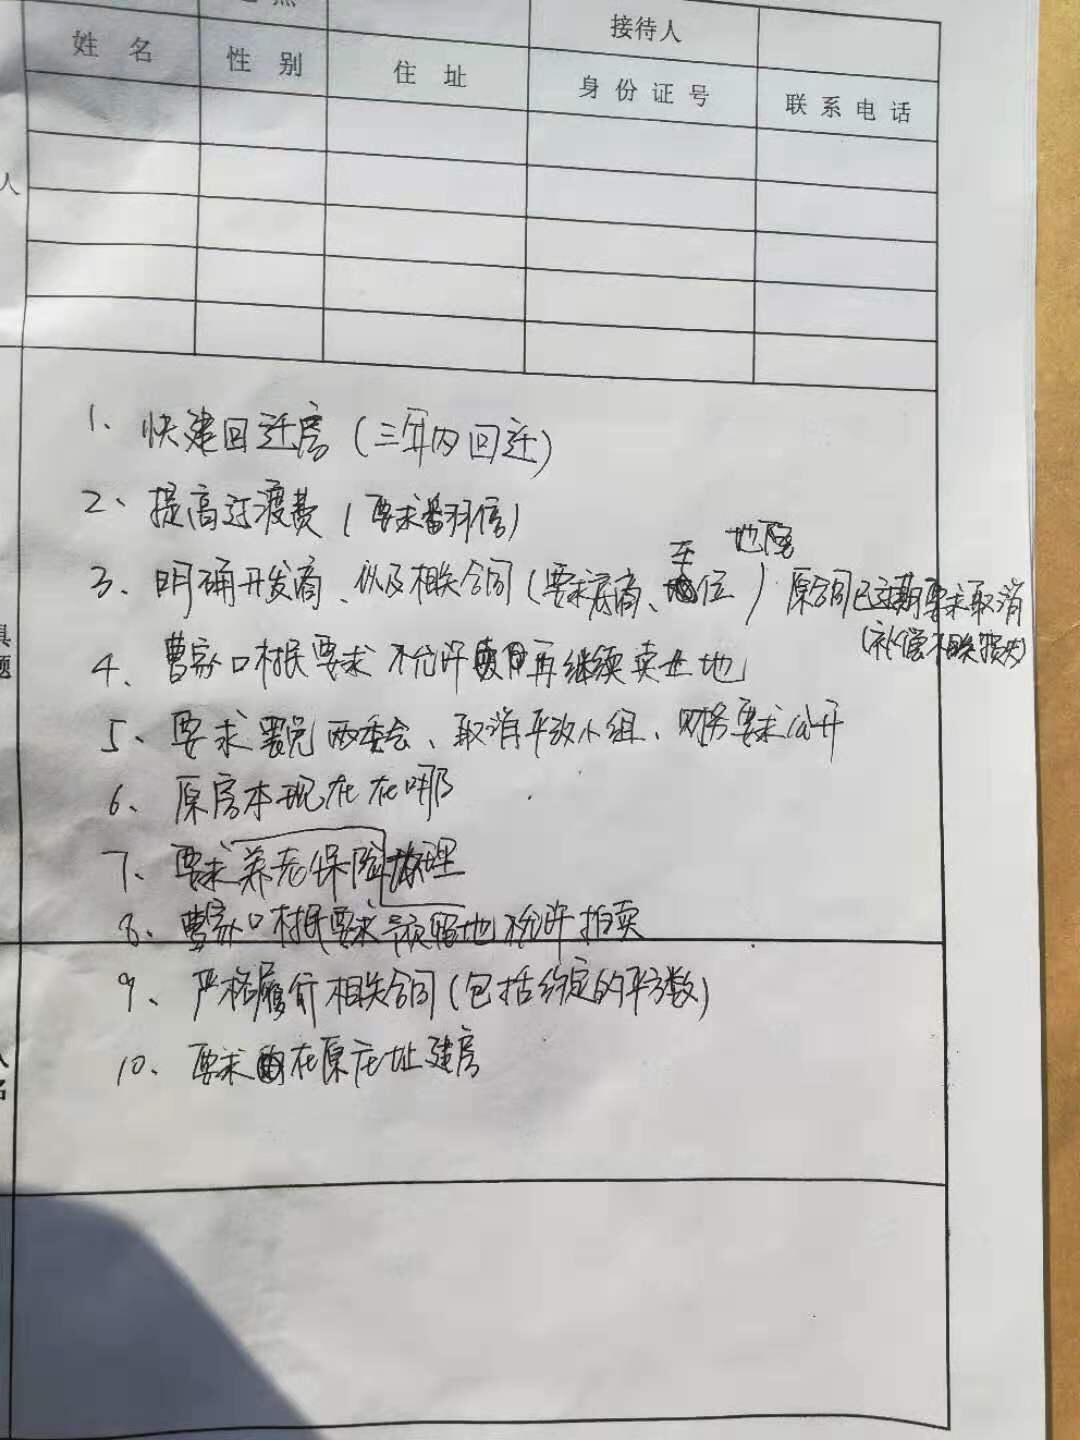 接待人
姓 名 性 别 住 址 身 份 证 号 联 系 电 话
人
1、快建回迁房（三年内回迁）
2、提高过渡费（要求番倍）
车 地库
3、明确开发商、以及相关合同（要求底商、位）原合同已过期要求取消
（补偿相关损失）
4、曹家口村民要求不允许再继续卖土地
5、要求罢免两委会、取消平改小组、财务要求公开
6、原房本现在在哪
7、要求养老保险办理
8、曹家口村民要求预留地不允许拍卖
9、严格履行相关合同（包括约定的平方数）
10、要求在原庄址建房